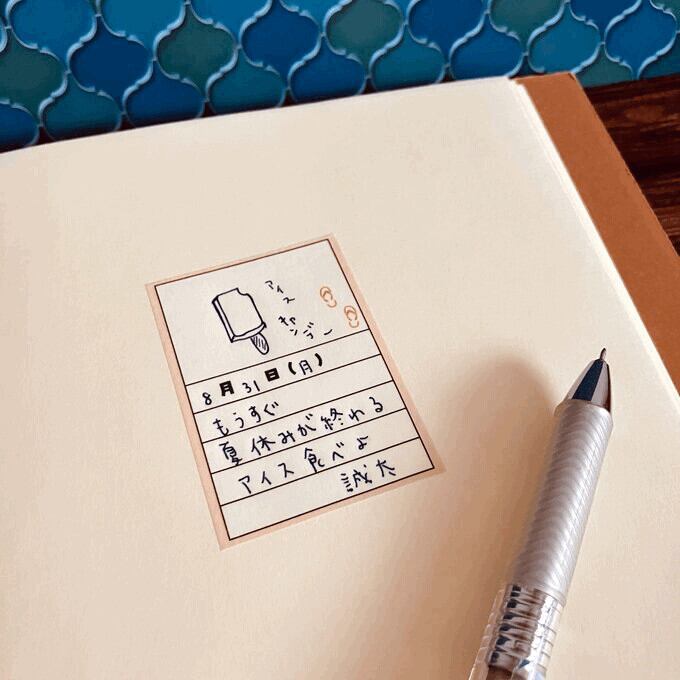 アイス
キャンデー
8月31日(月)
もうすぐ
夏休みが終わる
アイス食べよ
誠大